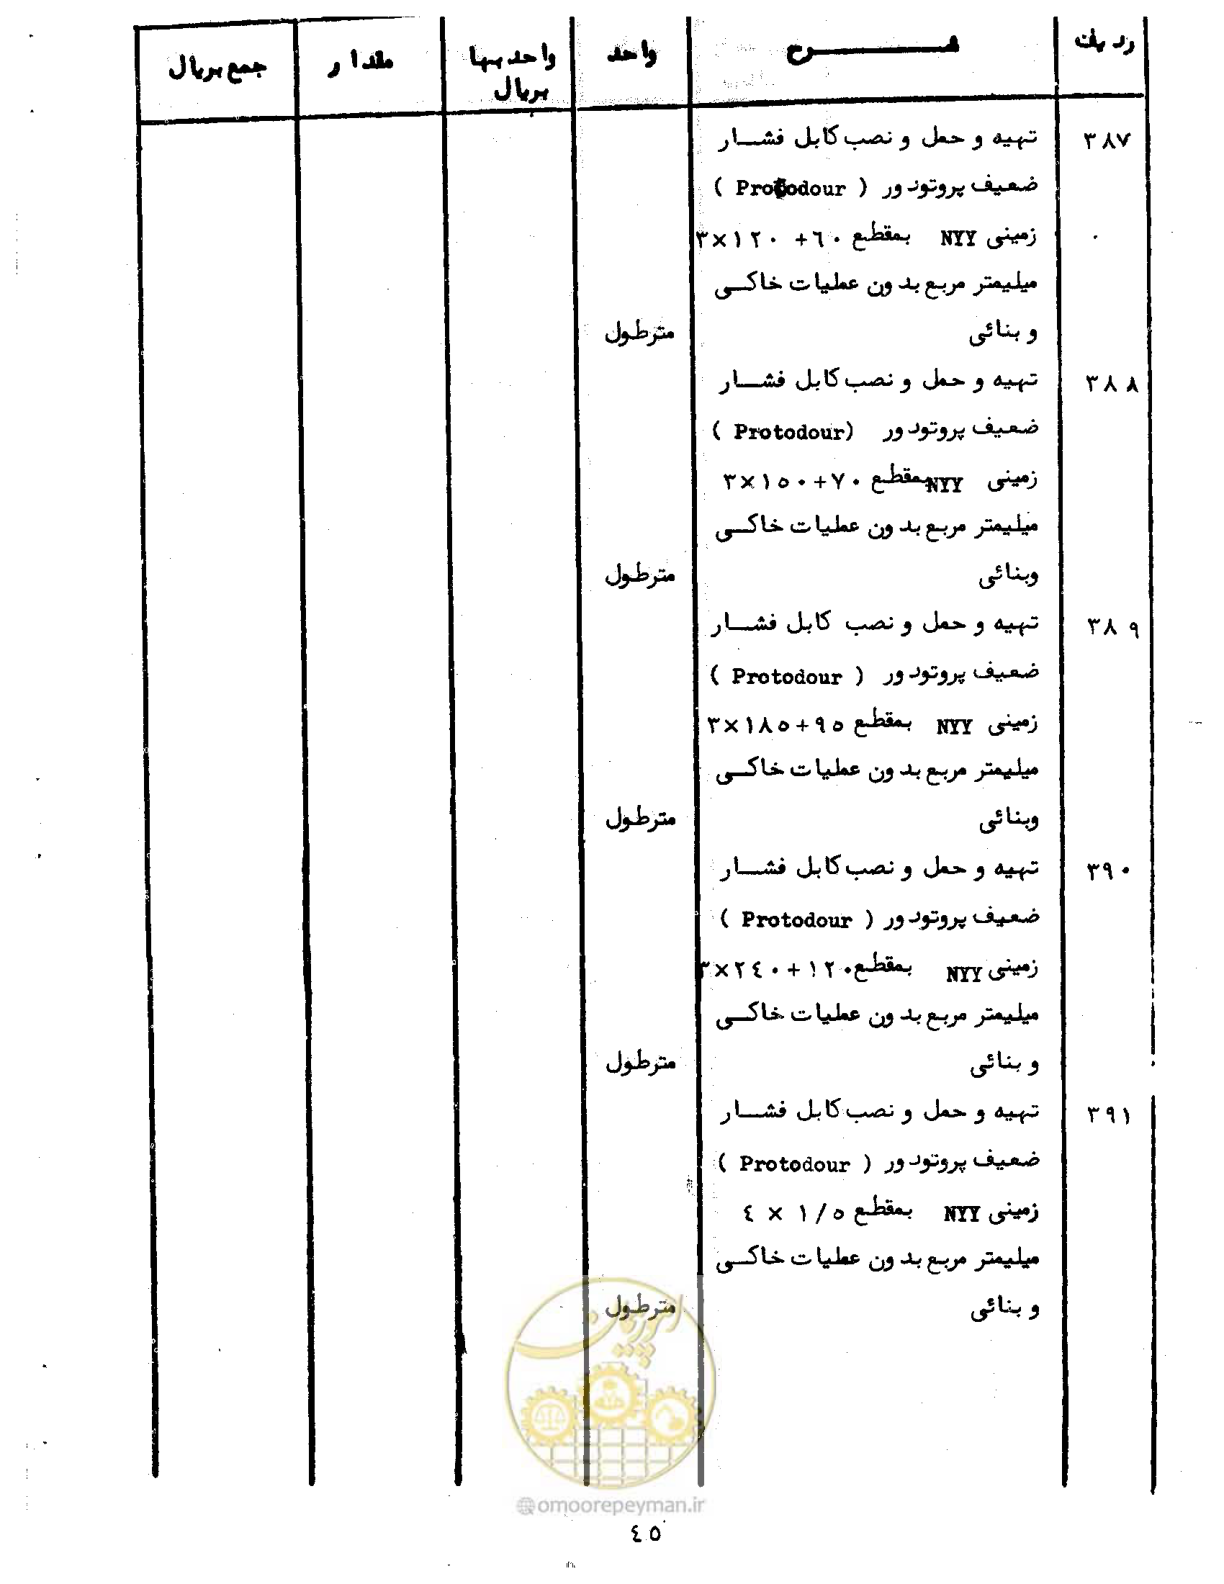 ردیف شرح واحد واحدبها بریال مقدار جمع بریال
۳۸۷ تهیه و حمل و نصب کابل فشار
ضعیف پروتودور ( Protodour )
زمینی NYY بمقطع ۶۰+ ۱۲۰×۳
میلیمتر مربع بدون عملیات خاکی
و بنائی مترطول
۳۸۸ تهیه و حمل و نصب کابل فشار
ضعیف پروتودور (Protodour )
زمینی NYY بمقطع ۷۰+۱۵۰×۳
میلیمتر مربع بدون عملیات خاکی
وبنائی مترطول
۳۸۹ تهیه و حمل و نصب کابل فشار
ضعیف پروتودور ( Protodour )
زمینی NYY بمقطع ۹۵+۱۸۵×۳
میلیمتر مربع بدون عملیات خاکی
وبنائی مترطول
۳۹۰ تهیه و حمل و نصب کابل فشار
ضعیف پروتودور ( Protodour )
زمینی NYY بمقطع ۱۲۰+۲۴۰×۳
میلیمتر مربع بدون عملیات خاکی
و بنائی مترطول
۳۹۱ تهیه و حمل و نصب کابل فشار
ضعیف پروتودور ( Protodour )
زمینی NYY بمقطع ۱/۵ × ۴
میلیمتر مربع بدون عملیات خاکی
و بنائی مترطول
امور پیمان
@omoorepeyman.ir
۴۵